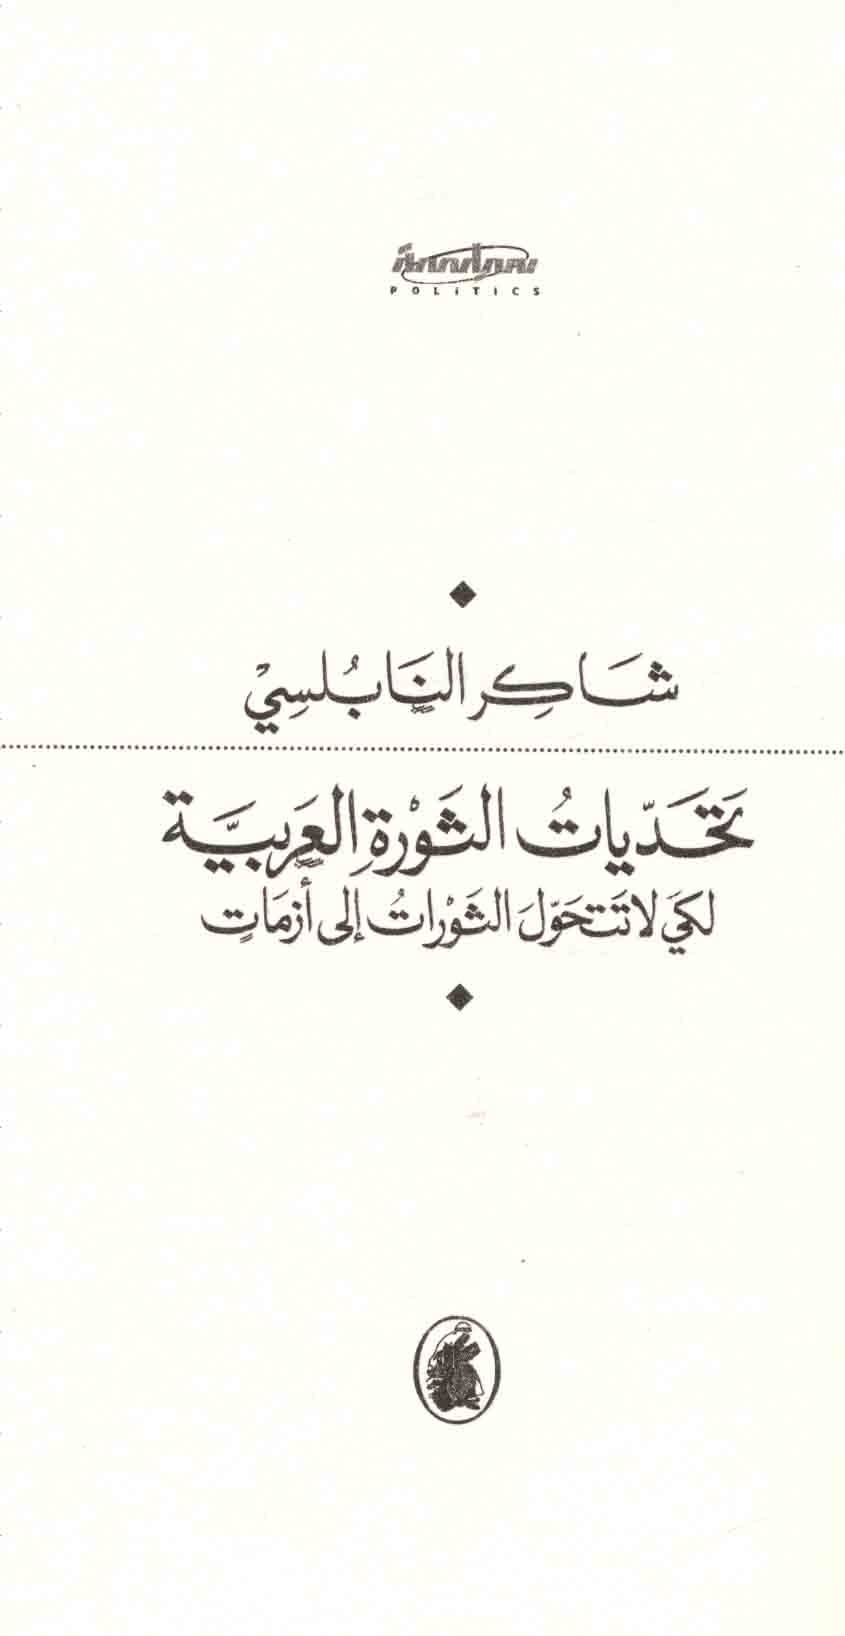 سياسة
POLiTiCS
شَاكِر النَّابُلسِيْ
تَحَدّيَاتُ الثَوْرةِ العَرَبيَّة
لكَيَ لا تَتَحَوّلَ الثَوْراتُ إلى أزمَاتٍ